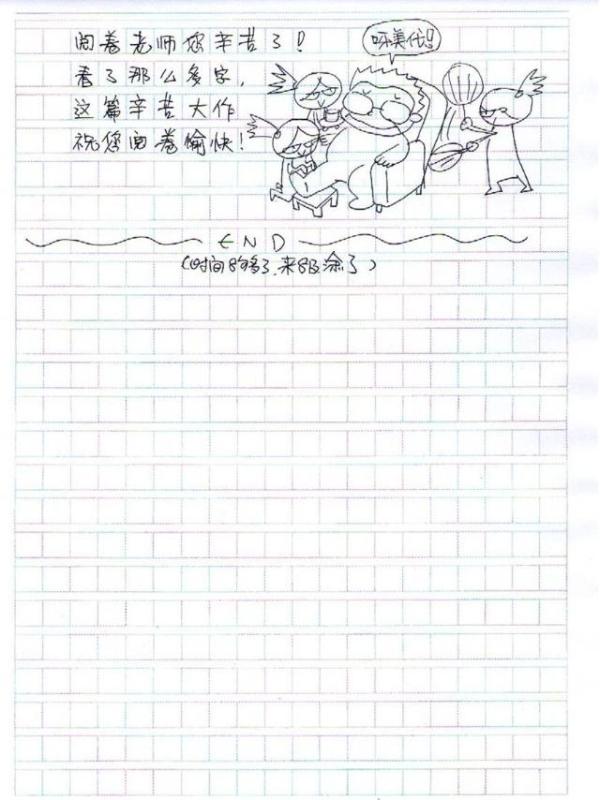 阅卷老师您辛苦了!
看了那么多字,
这篇辛苦大作
祝您阅卷愉快!
呀美代!!
END
(时间
来
涂了)